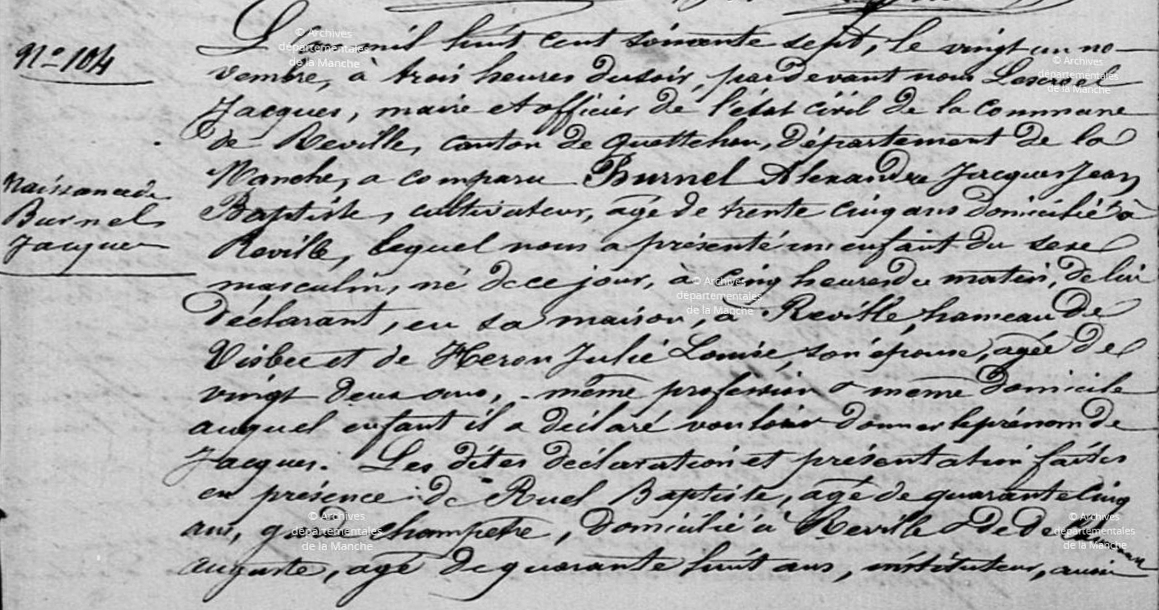 N° 104
Naissance de
Burnel
Jacques
L'an mil huit cent soixante sept, le vingt un no-
vembre, à trois heures du soir, par devant nous
Jacques, maire et officier de l'état civil de la Commune
de Reville, canton de Quettehou, département de la
Manche, a comparu Burnel Alexandre Jacques Jean
Baptiste, cultivateur, agé de trente cinq ans domicilié à
Reville, lequel nous a présenté un enfant du sexe
masculin, né de ce jour, à cinq heures du matin, de lui
déclarant, en sa maison, à Reville, hameau de
Visbec et de Heron Julie Louise, son épouse, agée de
vingt deux ans, même profession & même domicile
auquel enfant il a déclaré vouloir donner le prénom de
Jacques. Les dites déclaration et présentation faites
en présence de Ruel Baptiste, agé de quarante cinq
ans, garde champêtre, domicilié à Reville & de
auguste, agé de quarante huit ans, instituteur, aussi
© Archives
départementales
de la Manche
© Archives
départementales
de la Manche
© Archives
départementales
de la Manche
© Archives
départementales
de la Manche
© Archives
départementales
de la Manche